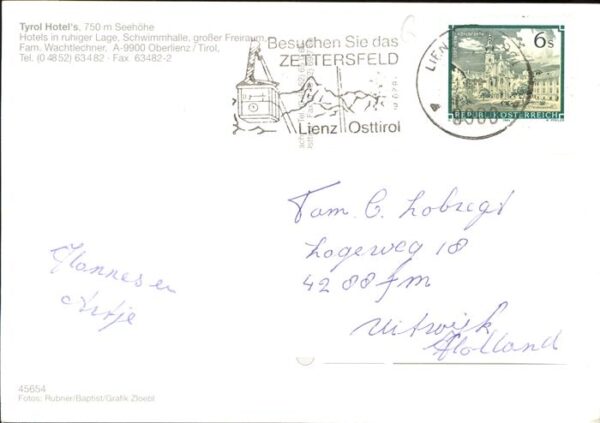 Tyrol Hotel's, 750 m Seehöhe
Hotels in ruhiger Lage, Schwimmhalle, großer Freiraum,
Fam. Wachtlechner, A-9900 Oberlienz / Tirol,
Tel. (0 48 52) 634 82 · Fax 63482-2
Besuchen Sie das
ZETTERSFELD
Lienz Osttirol
LIENZ
6s
REPUBLIK ÖSTERREICH
Fam. C. Lobregt
Lageweg 18
4288 fm
Uitwijk
Holland
Hannes en
Artje
45654
Fotos: Rubner/Baptist/Grafik Zloebl